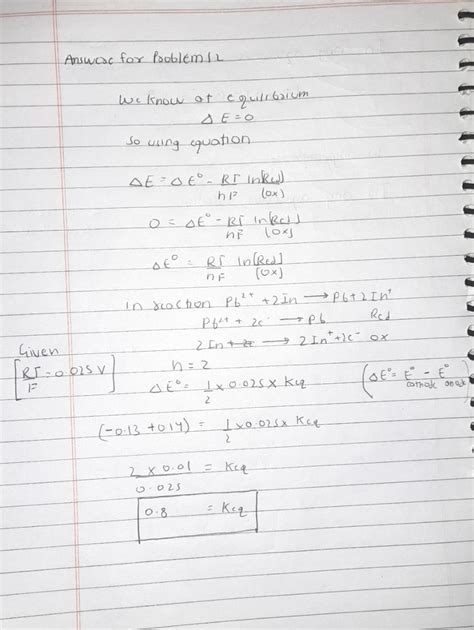 Answer for Problem 12
We know at equilibrium
ΔE = 0
So using equation
ΔE = ΔE° - RT/nF ln[Red]/[Ox]
0 = ΔE° - RT/nF ln[Red]/[Ox]
ΔE° = RT/nF ln[Red]/[Ox]
In reaction Pb²⁺ + 2In ⟶ Pb + 2In⁺
Pb²⁺ + 2e⁻ ⟶ Pb Red
2In ⟶ 2In⁺ + 2e⁻ Ox
Given
[RT/F = 0.025 V]
n = 2
ΔE° = 1/2 x 0.025 x Keq
(ΔE° = E°cathode - E°anode)
(-0.13 + 0.14) = 1/2 x 0.025 x Keq
2 x 0.01/0.025 = Keq
0.8 = Keq